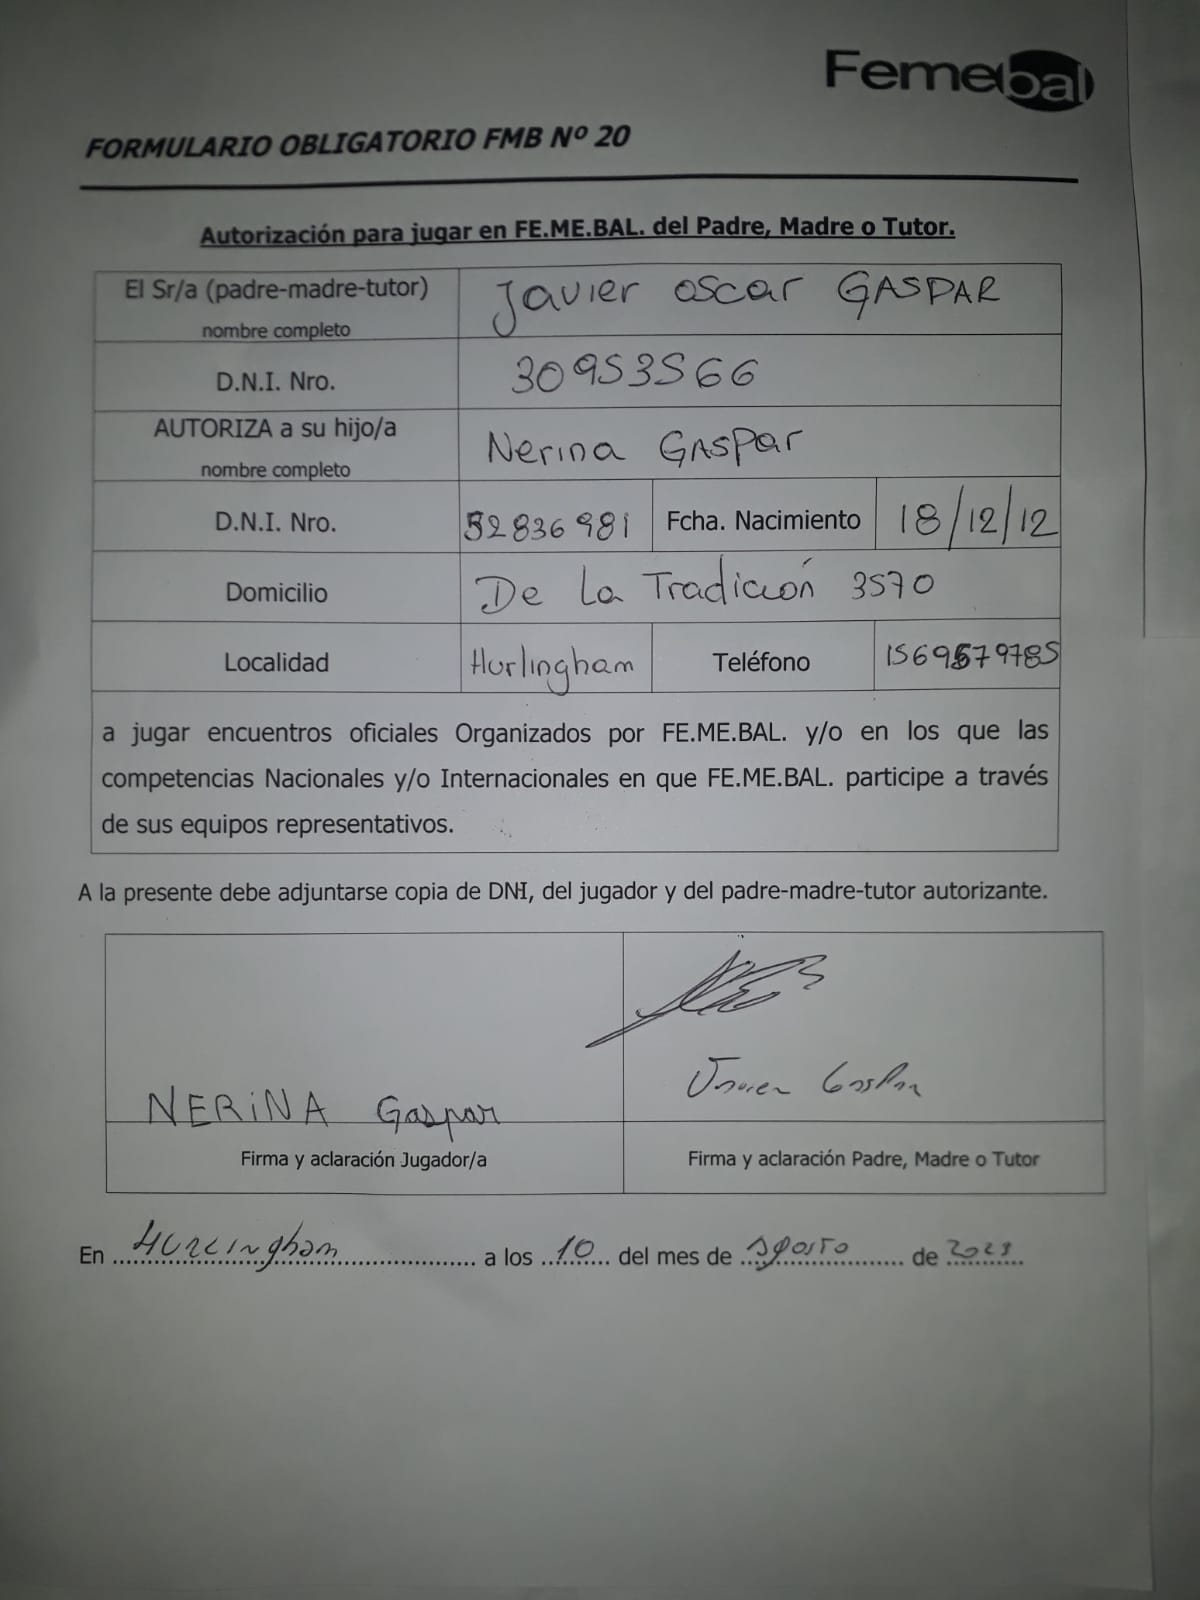 Femebal
FORMULARIO OBLIGATORIO FMB Nº 20
Autorización para jugar en FE.ME.BAL. del Padre, Madre o Tutor.
El Sr/a (padre-madre-tutor) Javier oscar GASPAR
nombre completo
D.N.I. Nro. 30953566
AUTORIZA a su hijo/a Nerina GASPar
nombre completo
D.N.I. Nro. 52836981 Fcha. Nacimiento 18/12/12
Domicilio De La Tradición 3570
Localidad Hurlingham Teléfono
a jugar encuentros oficiales Organizados por FE.ME.BAL. y/o en los que las
competencias Nacionales y/o Internacionales en que FE.ME.BAL. participe a través
de sus equipos representativos.
A la presente debe adjuntarse copia de DNI, del jugador y del padre-madre-tutor autorizante.
NERiNA Gaspar Javier Gaspar
Firma y aclaración Jugador/a Firma y aclaración Padre, Madre o Tutor
En Hurlingham a los 10 del mes de Agosto de